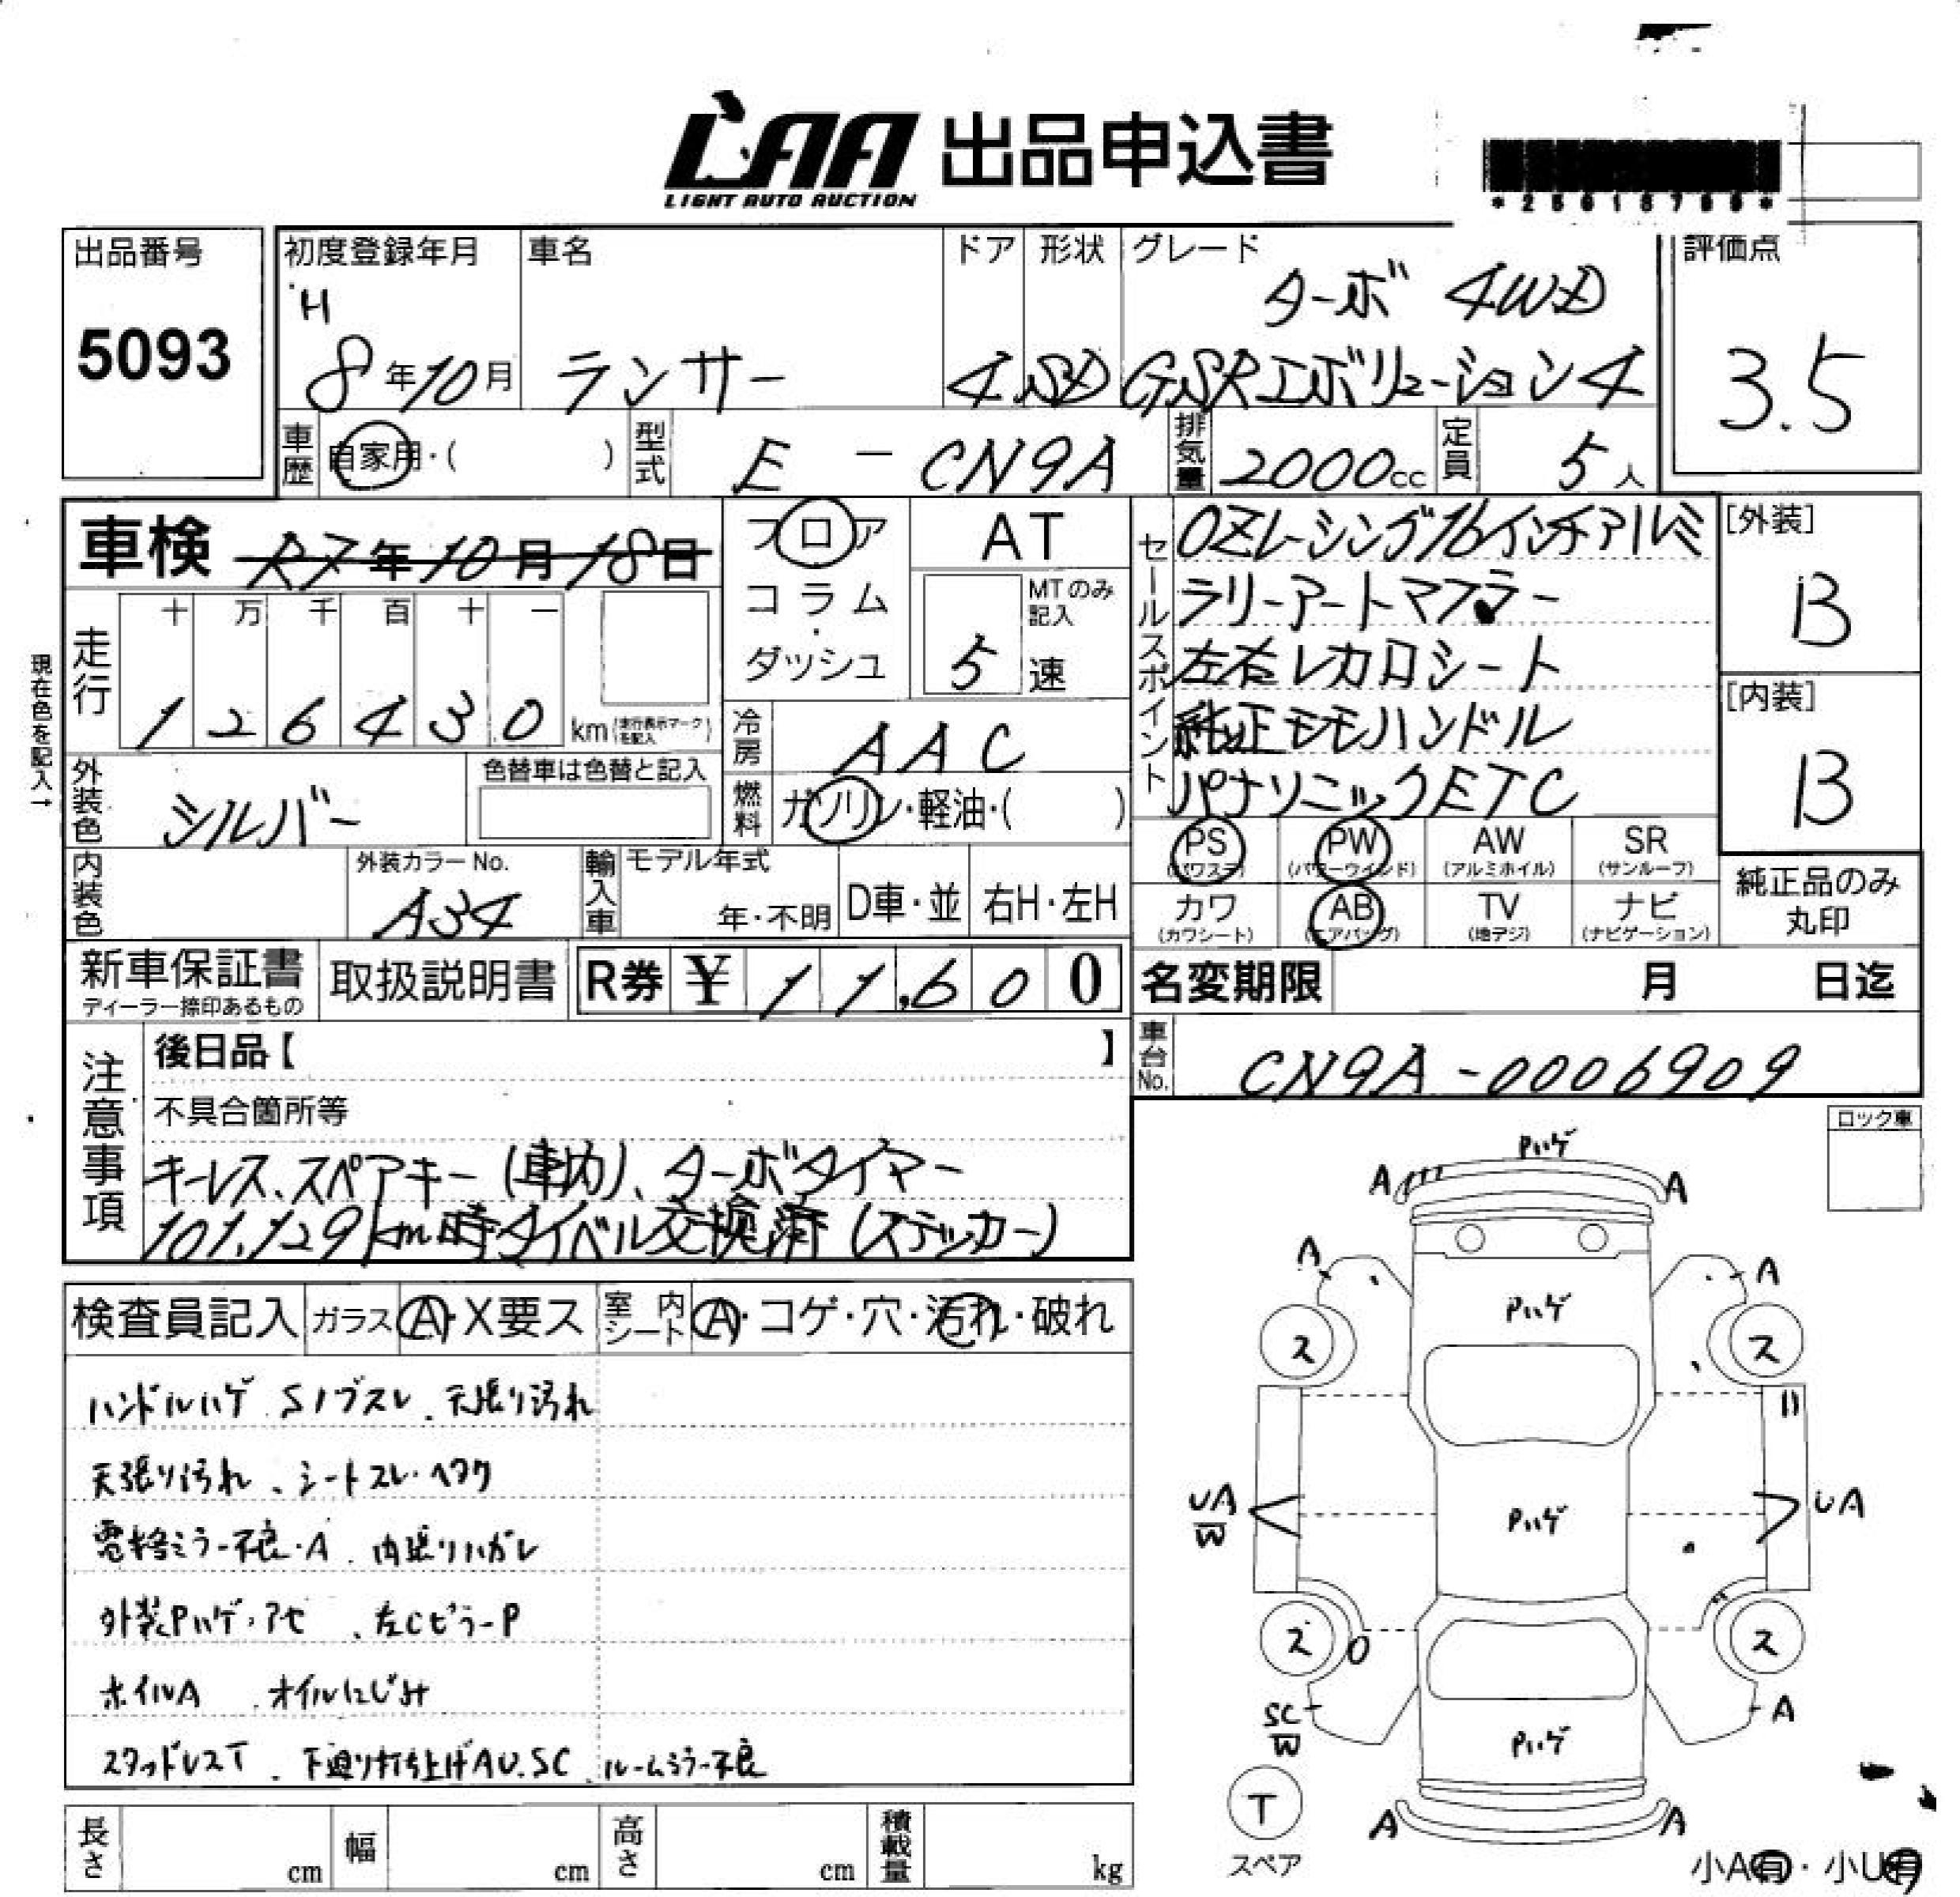 LAA 出品申込書
LIGHT AUTO AUCTION
出品番号
5093
初度登録年月
H
8年10月
車名
ランサー
ドア
4
形状
SD
グレード
ターボ 4WD
GSRエボリューション4
評価点
3.5
車歴
自家用・( )
型式
E - CN9A
排気量
2000cc
定員
5人
車検 R7年10月18日
フロア
コラム・
ダッシュ
AT
MTのみ記入
5速
セールスポイント
OZレーシング16インチアルミ
ラリーアートマフラー
左右レカロシート
純正モモハンドル
パナソニックETC
[外装]
B
[内装]
B
現在色を記入→
走行
十 万 千 百 十 一
1 2 6 4 3 0 km (走行表示マークを記入)
冷房
AAC
燃料
ガソリン・軽油・( )
外装色
シルバー
色替車は色替と記入
内装色
外装カラーNo.
A34
輸入車
モデル年式
年・不明
D車・並
右H・左H
PS
(パワステ)
PW
(パワーウインド)
AW
(アルミホイル)
SR
(サンルーフ)
カワ
(カワシート)
AB
(エアバッグ)
TV
(地デジ)
ナビ
(ナビゲーション)
純正品のみ
丸印
新車保証書
ディーラー捺印あるもの
取扱説明書
R券 ¥ 11,600
名変期限 月 日迄
車台No.
CN9A-0006909
注意事項
後日品【 】
不具合箇所等
キーレス、スペアキー(車内)、ターボタイマー
101,129km時タイベル交換済(ステッカー)
ロック車
検査員記入
ガラス
A・X要ス
室内シート
A・コゲ・穴・汚れ・破れ
ハンドルハゲ Sノブスレ、天張り汚れ
天張り汚れ、シートスレ・ヘタク
電格ミラー不良・A 、内張りハガレ
外装Pハゲ・アセ 、左CピラーP
ホイルA 、オイルにじみ
スタッドレスT 、下廻り打ち上げAU.SC 、ルームミラー不良
Pハゲ
A A
A A
Pハゲ
ス ス
UA
W
Pハゲ
UA
ス O ス
SC
W
A
Pハゲ
T
スペア
A A
小A有・小U有
長さ cm
幅 cm
高さ cm
積載量 kg